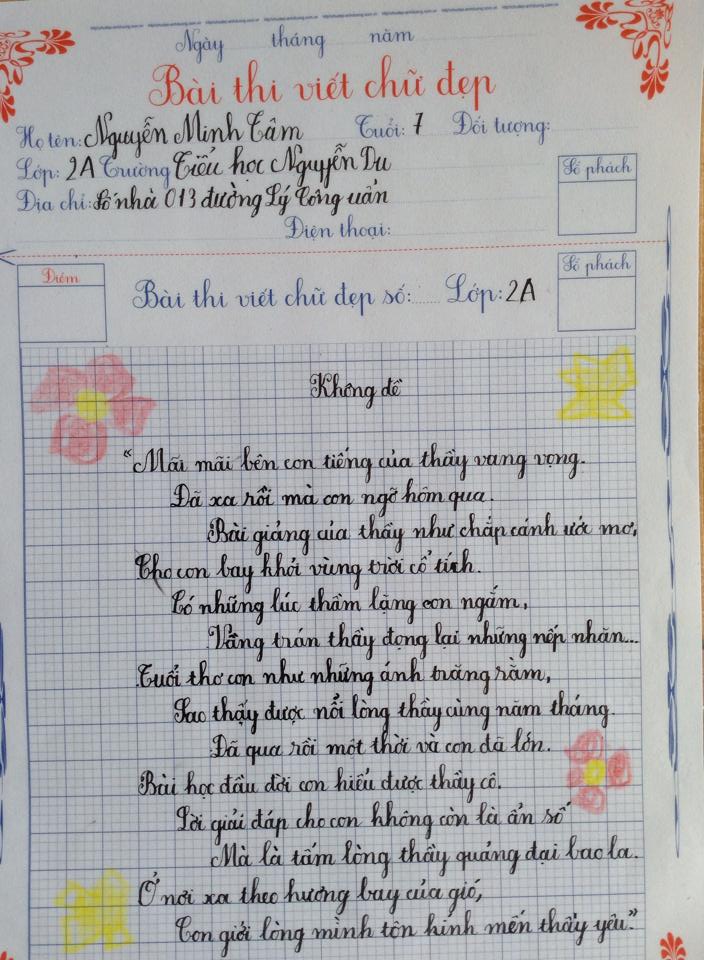 Ngày tháng năm
Bài thi viết chữ đẹp
Họ tên: Nguyễn Minh Tâm Tuổi: 7 Đối tượng:
Lớp: 2A Trường Tiểu học Nguyễn Du
Địa chỉ: Số nhà 013 đường Lý Công uẩn
Số phách
Điện thoại:
Điểm
Bài thi viết chữ đẹp số: Lớp: 2A
Số phách
Không đề
"Mãi mãi bên con tiếng của thầy vang vọng.
Đã xa rồi mà con ngỡ hôm qua.
Bài giảng của thầy như chắp cánh ước mơ,
Cho con bay khỏi vùng trời cổ tích.
Có những lúc thầm lặng con ngắm,
Vầng trán thầy đọng lại những nếp nhăn...
Tuổi thơ con như những ánh trăng rằm,
Sao thấy được nỗi lòng thầy cùng năm tháng.
Đã qua rồi một thời và con đã lớn.
Bài học đầu đời con hiểu được thầy cô.
Lời giải đáp cho con không còn là ẩn số
Mà là tấm lòng thầy quảng đại bao la.
Ở nơi xa theo hương bay của gió,
Con giới lòng mình tôn kính mến thầy yêu."